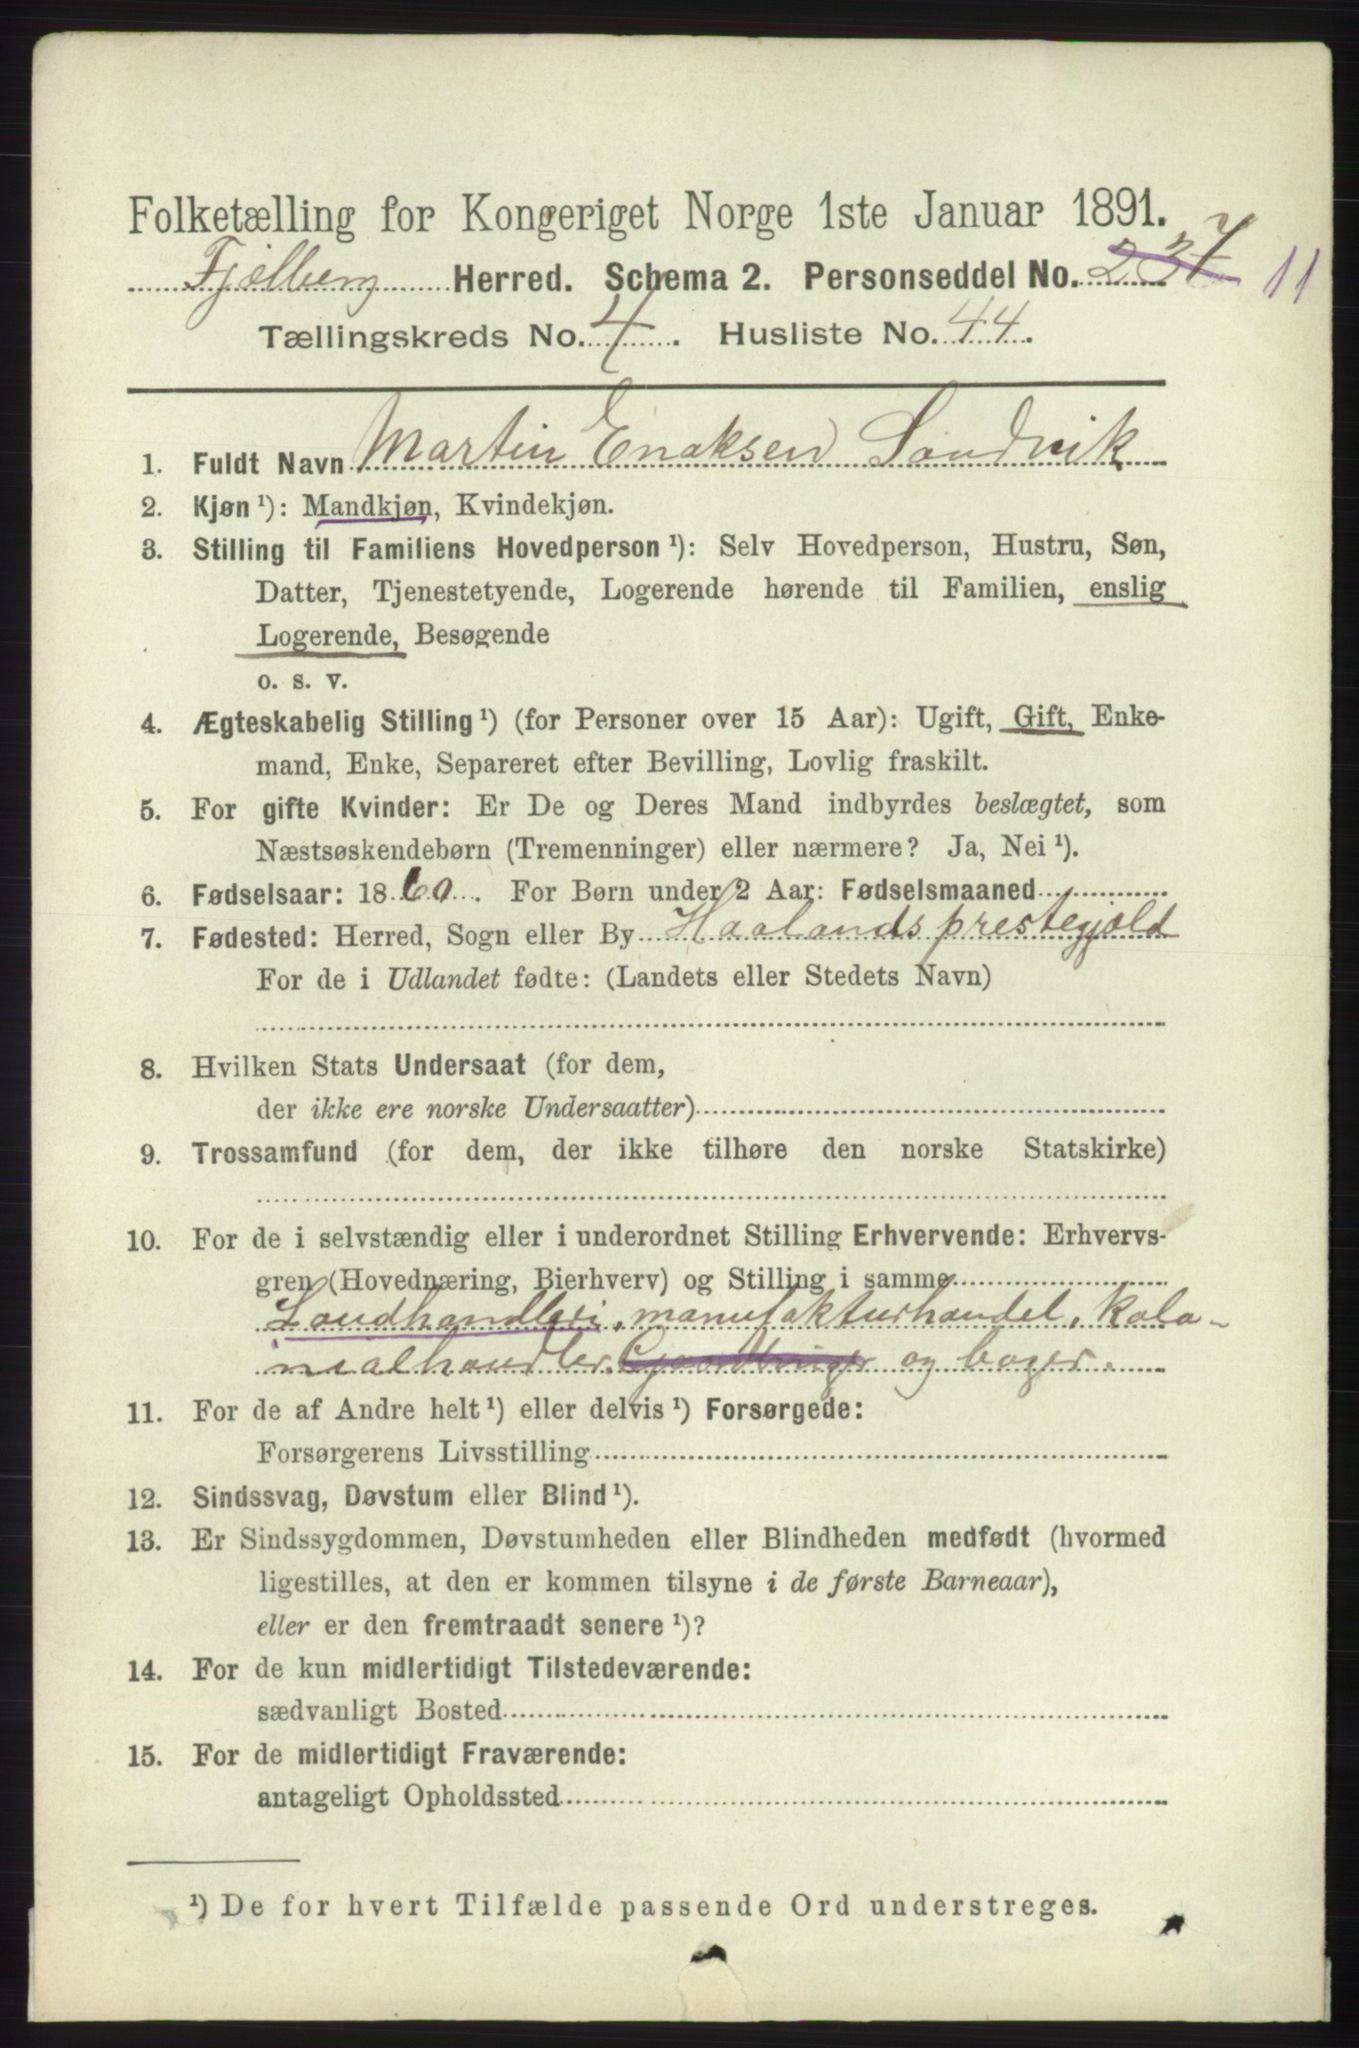 Folketælling for Kongeriget Norge 1ste Januar 1891.
Fjelberg Herred. Schema 2. Personseddel No. 237 11
Tællingskreds No. 4. Husliste No. 44.
1. Fuldt Navn Martin Enoksen Sandvik
2. Kjøn ¹): Mandkjøn, Kvindekjøn.
3. Stilling til Familiens Hovedperson ¹): Selv Hovedperson, Hustru, Søn,
Datter, Tjenestetyende, Logerende hørende til Familien, enslig
Logerende, Besøgende
o. s. v.
4. Ægteskabelig Stilling ¹) (for Personer over 15 Aar): Ugift, Gift, Enke-
mand, Enke, Separeret efter Bevilling, Lovlig fraskilt.
5. For gifte Kvinder: Er De og Deres Mand indbyrdes beslægtet, som
Næstsøskendebørn (Tremenninger) eller nærmere? Ja, Nei ¹).
6. Fødselsaar: 1860. For Børn under 2 Aar: Fødselsmaaned
7. Fødested: Herred, Sogn eller By Haalands prestegjeld
For de i Udlandet fødte: (Landets eller Stedets Navn)
8. Hvilken Stats Undersaat (for dem,
der ikke ere norske Undersaatter)
9. Trossamfund (for dem, der ikke tilhøre den norske Statskirke)
10. For de i selvstændig eller i underordnet Stilling Erhvervende: Erhvervs-
gren (Hovednæring, Bierhverv) og Stilling i samme
Landhandleri, manufakturhandel, kolo-
nialhandler. Gaardbruger og bager.
11. For de af Andre helt ¹) eller delvis ¹) Forsørgede:
Forsørgerens Livsstilling
12. Sindssvag, Døvstum eller Blind ¹).
13. Er Sindssygdommen, Døvstumheden eller Blindheden medfødt (hvormed
ligestilles, at den er kommen tilsyne i de første Barneaar),
eller er den fremtraadt senere ¹)?
14. For de kun midlertidigt Tilstedeværende:
sædvanligt Bosted
15. For de midlertidigt Fraværende:
antageligt Opholdssted
¹) De for hvert Tilfælde passende Ord understreges.